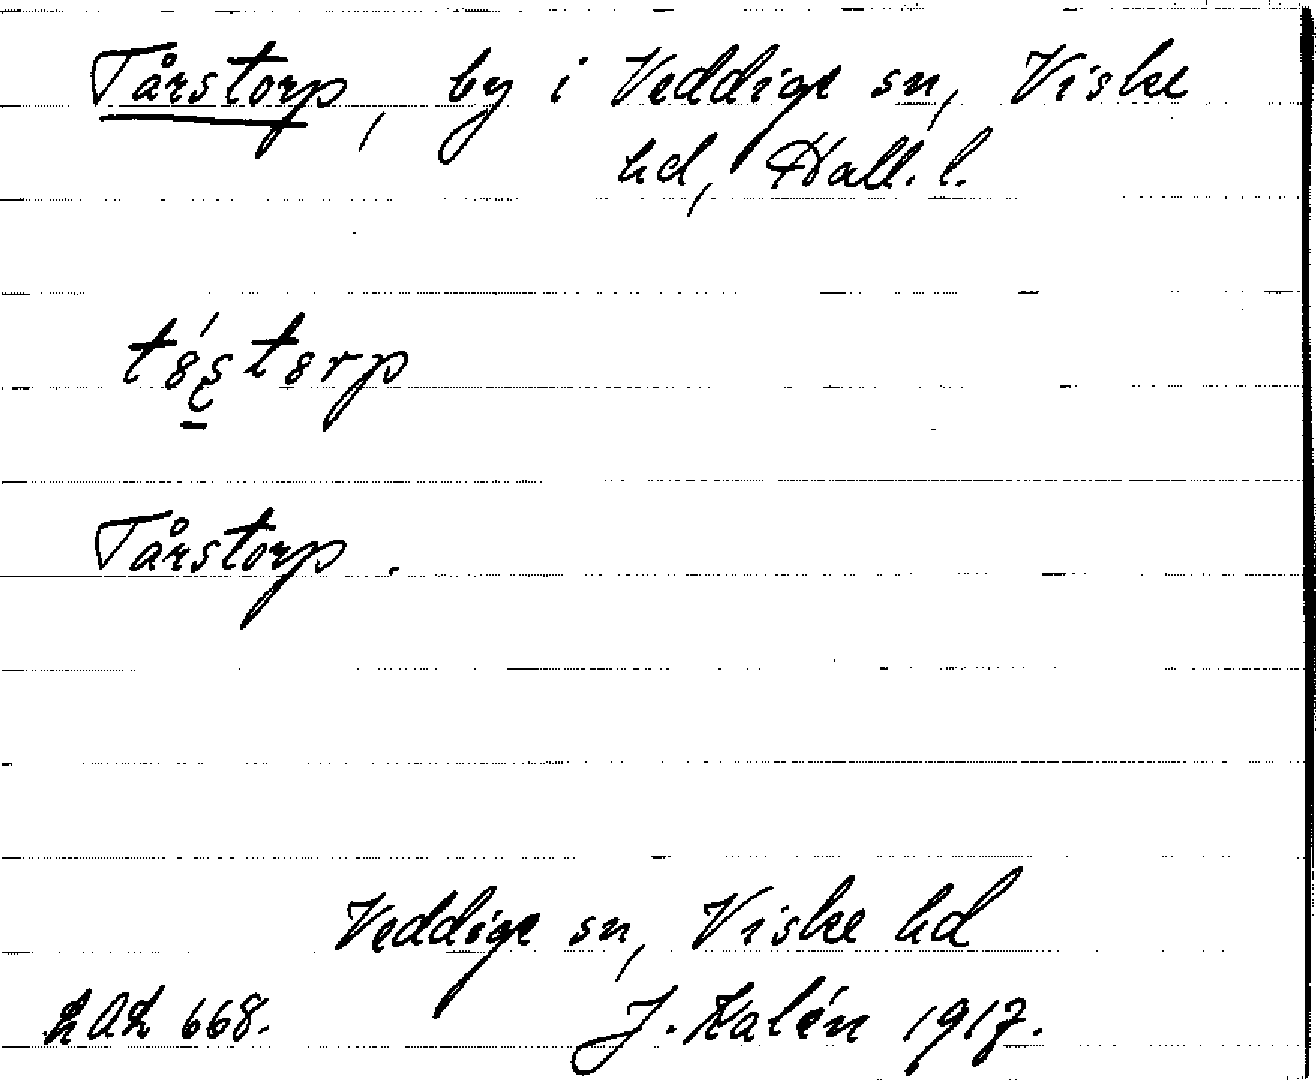 Tårstorp, by i Veddige sn, Viske
hd, Hall. l.
Tårstorp.
Veddige sn, Viske hd
668. J. Kalén 1917.